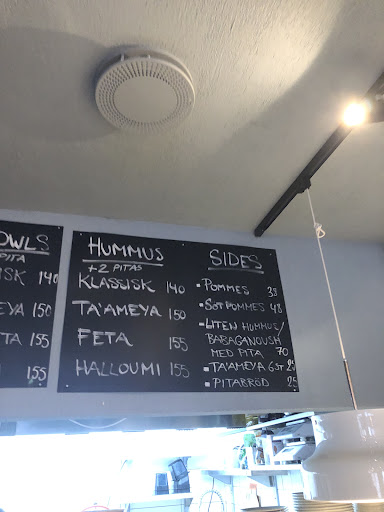 OWLS
PITA
ISK 140
EYA 150
TA 155
155
HUMMUS
+2 PITAS
KLASSISK 140
TA'AMEYA 150
FETA 155
HALLOUMI 155
SIDES
▪ POMMES 38
▪ SÖTPOMMES 48
▪ LITEN HUMMUS/
BABAGANOUSH
MED PITA 70
▪ TA'AMEYA 6ST 25
▪ PITABRÖD 25